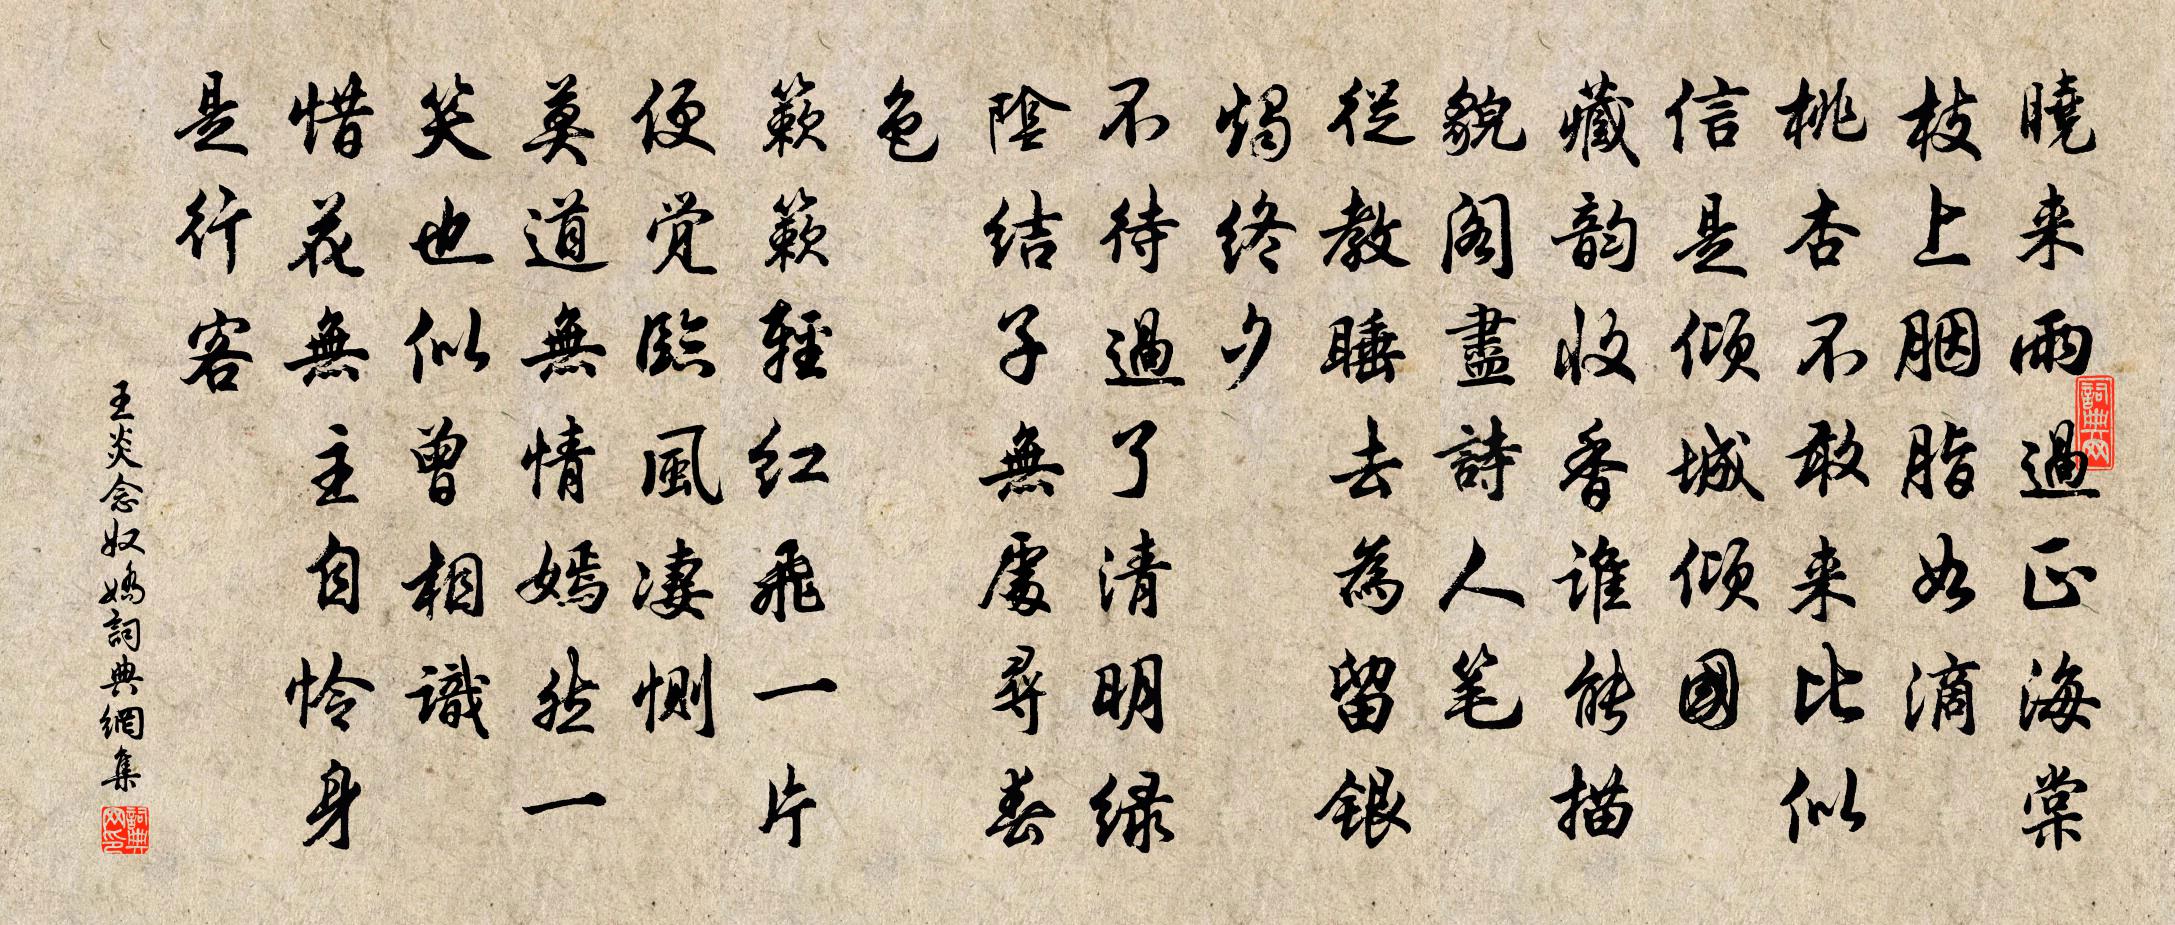 曉来雨過正海棠
枝上胭脂如滴
桃杏不敢来比似
信是傾城傾國
藏韵收香谁能描
貌閣盡詩人笔
從教睡去為留銀
燭终夕
不待過了清明绿
陰结子無處尋春
色
簌簌輕红飛一片
便觉臨風凄惻
莫道無情嫣然一
笑也似曾相識
惜花無主自怜身
是行客
王炎念奴嬌詞典網集
詞典网
詞典网印